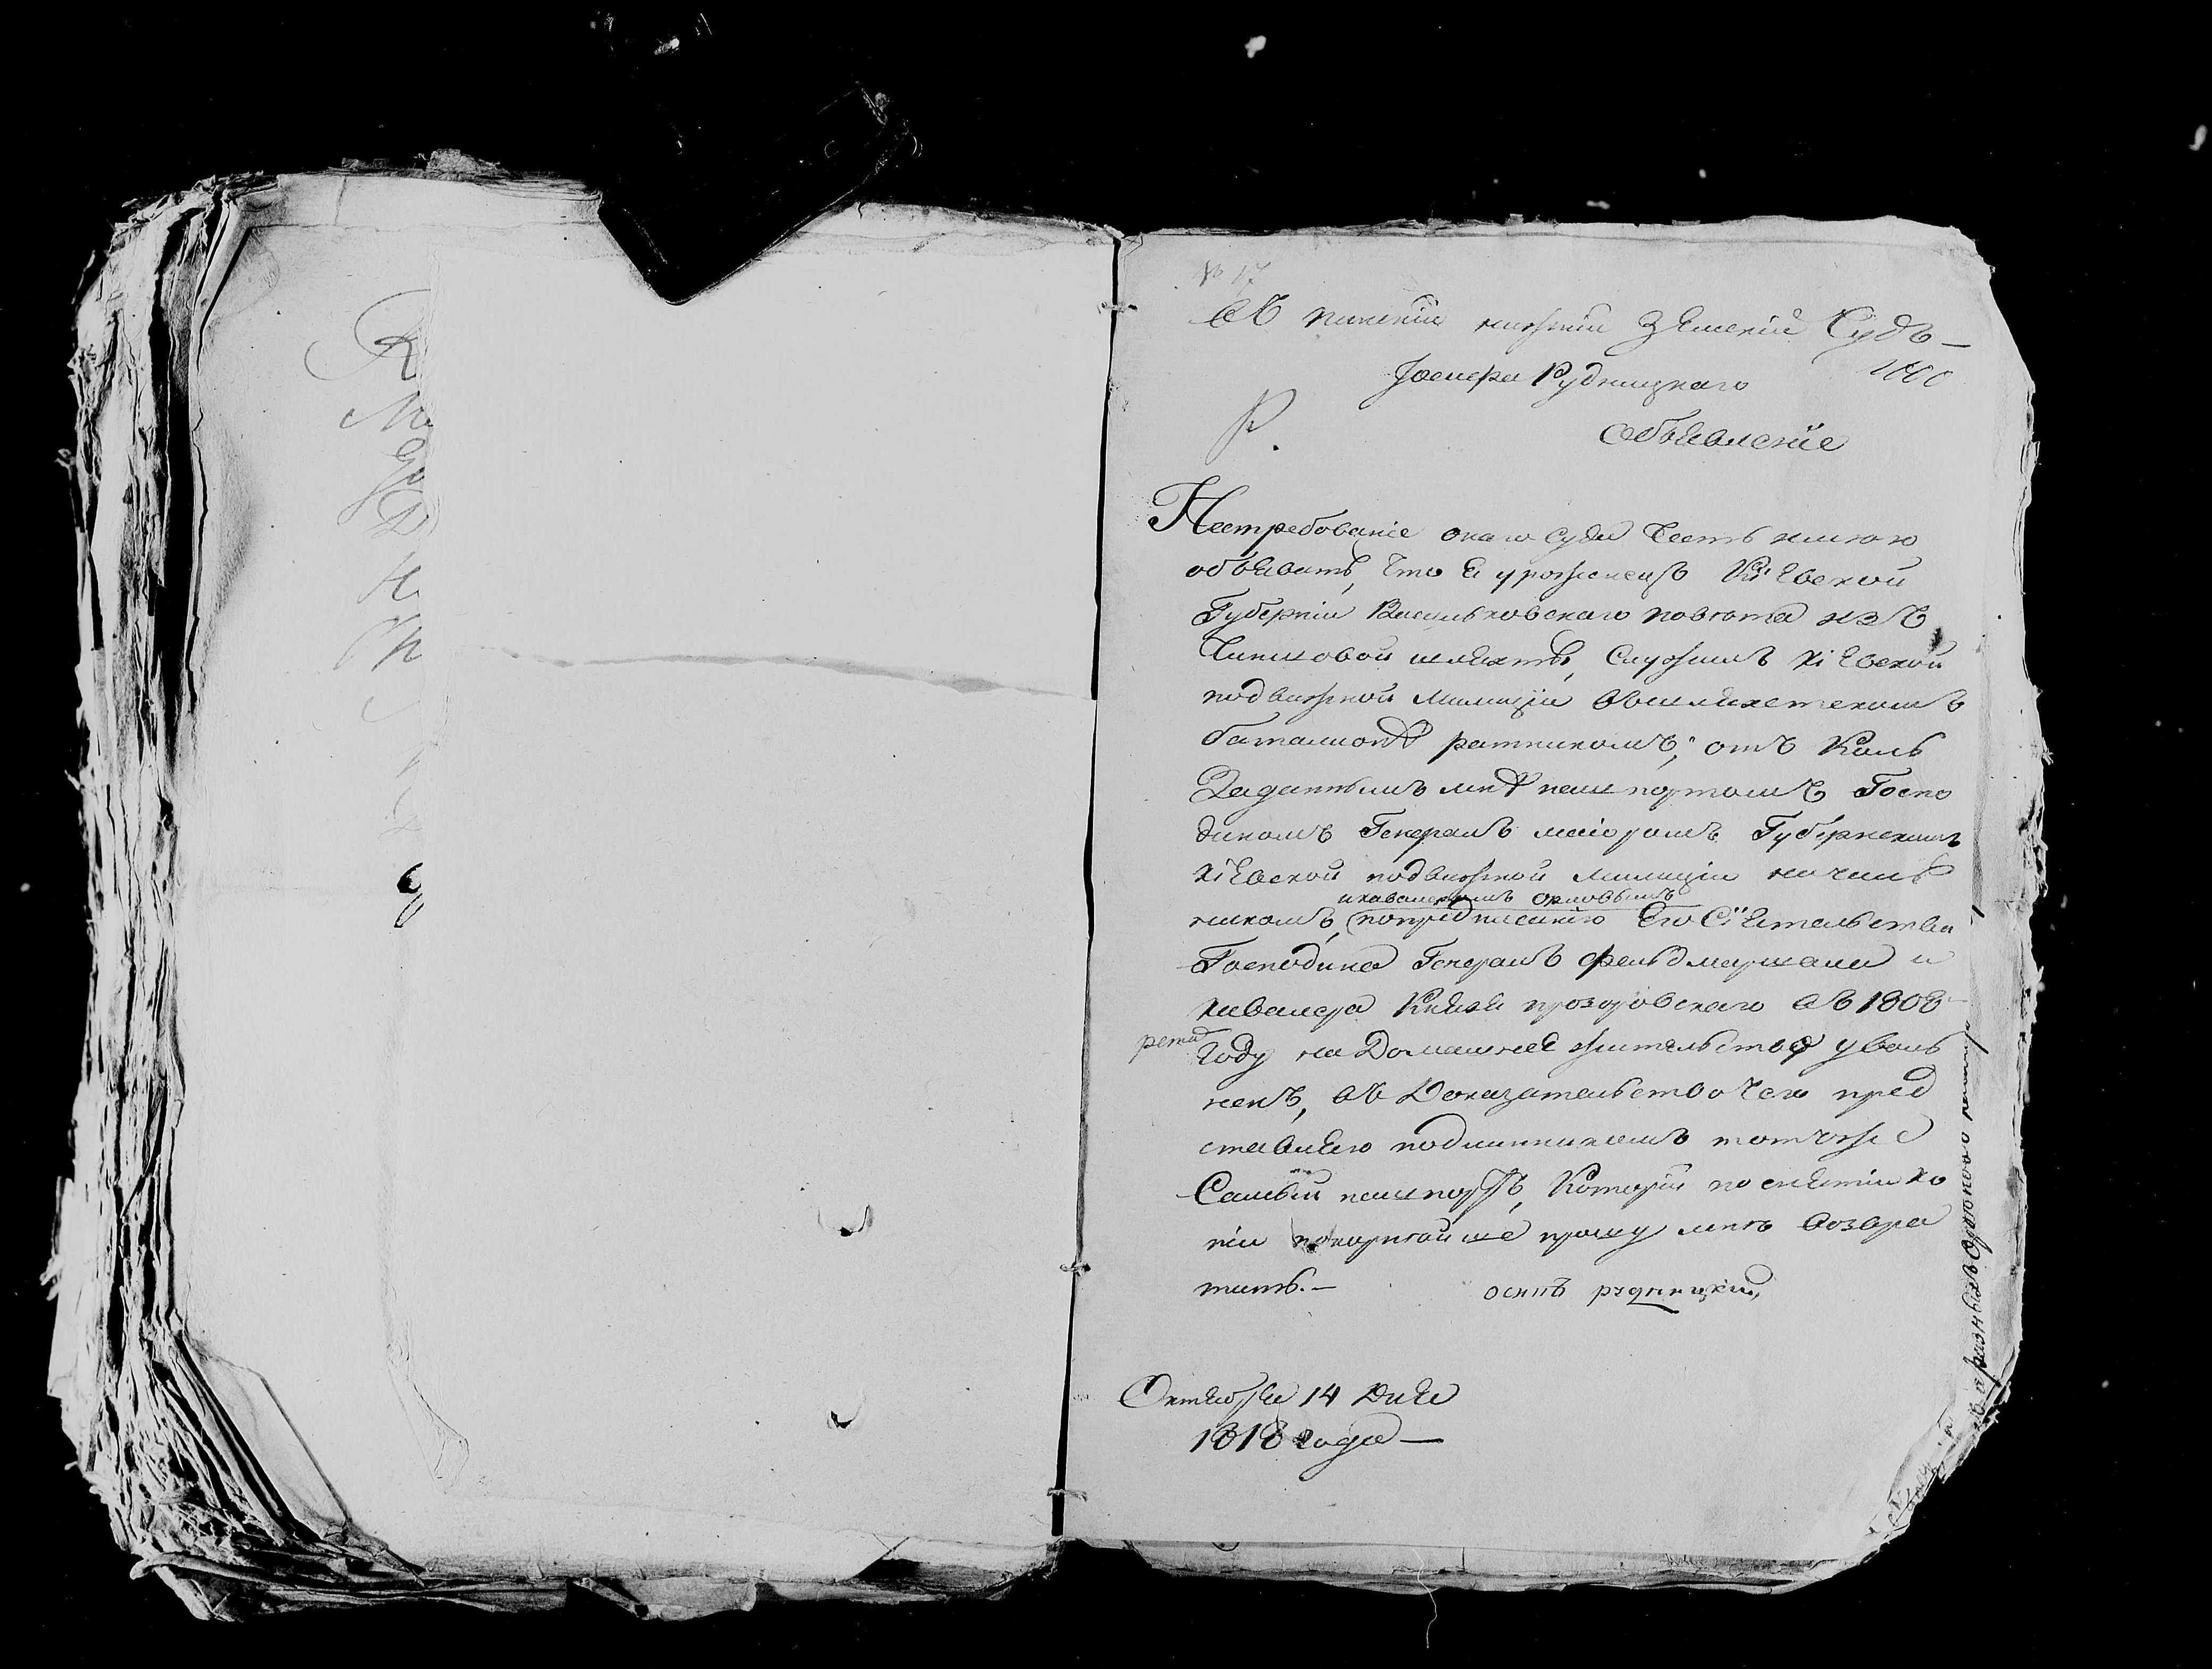 № 17
Въ пинскій нижній Земскій Судъ —
Іосифа Рудницкаго
Р.
Объявленіе
На требованіе онаго Суда Честь имѣю
объявить, что я уроженецъ Кіевской
Губерніи Васильковскаго повѣта изъ
Чиншовой шляхты, Служилъ Кіевской
подвижной милиціи въ шляхетскомъ
баталіонѣ ратникомъ, отъ коль
Заданнымъ мнѣ пашпортомъ Госпо
диномъ Генералъ маіоромъ Губернскимъ
Кіевской подвижной милиціи началь
и кавалеромъ Орловымъ
никомъ, по предписанію Его Сіятельства
Господина Генералъ фельдмаршала и
Кавалера Князя прозоровскаго въ 1808
году на Домашнее жительство уволь
ненъ, въ Доказательство чего пред
ставляю подлинникомъ тотъ же
Самый пашпортъ, Который по снятіи ко
піи покорнѣйше прошу мнѣ возвра
тить. —
осипъ рудницкій,
Октября 14 Дня
1818 года —